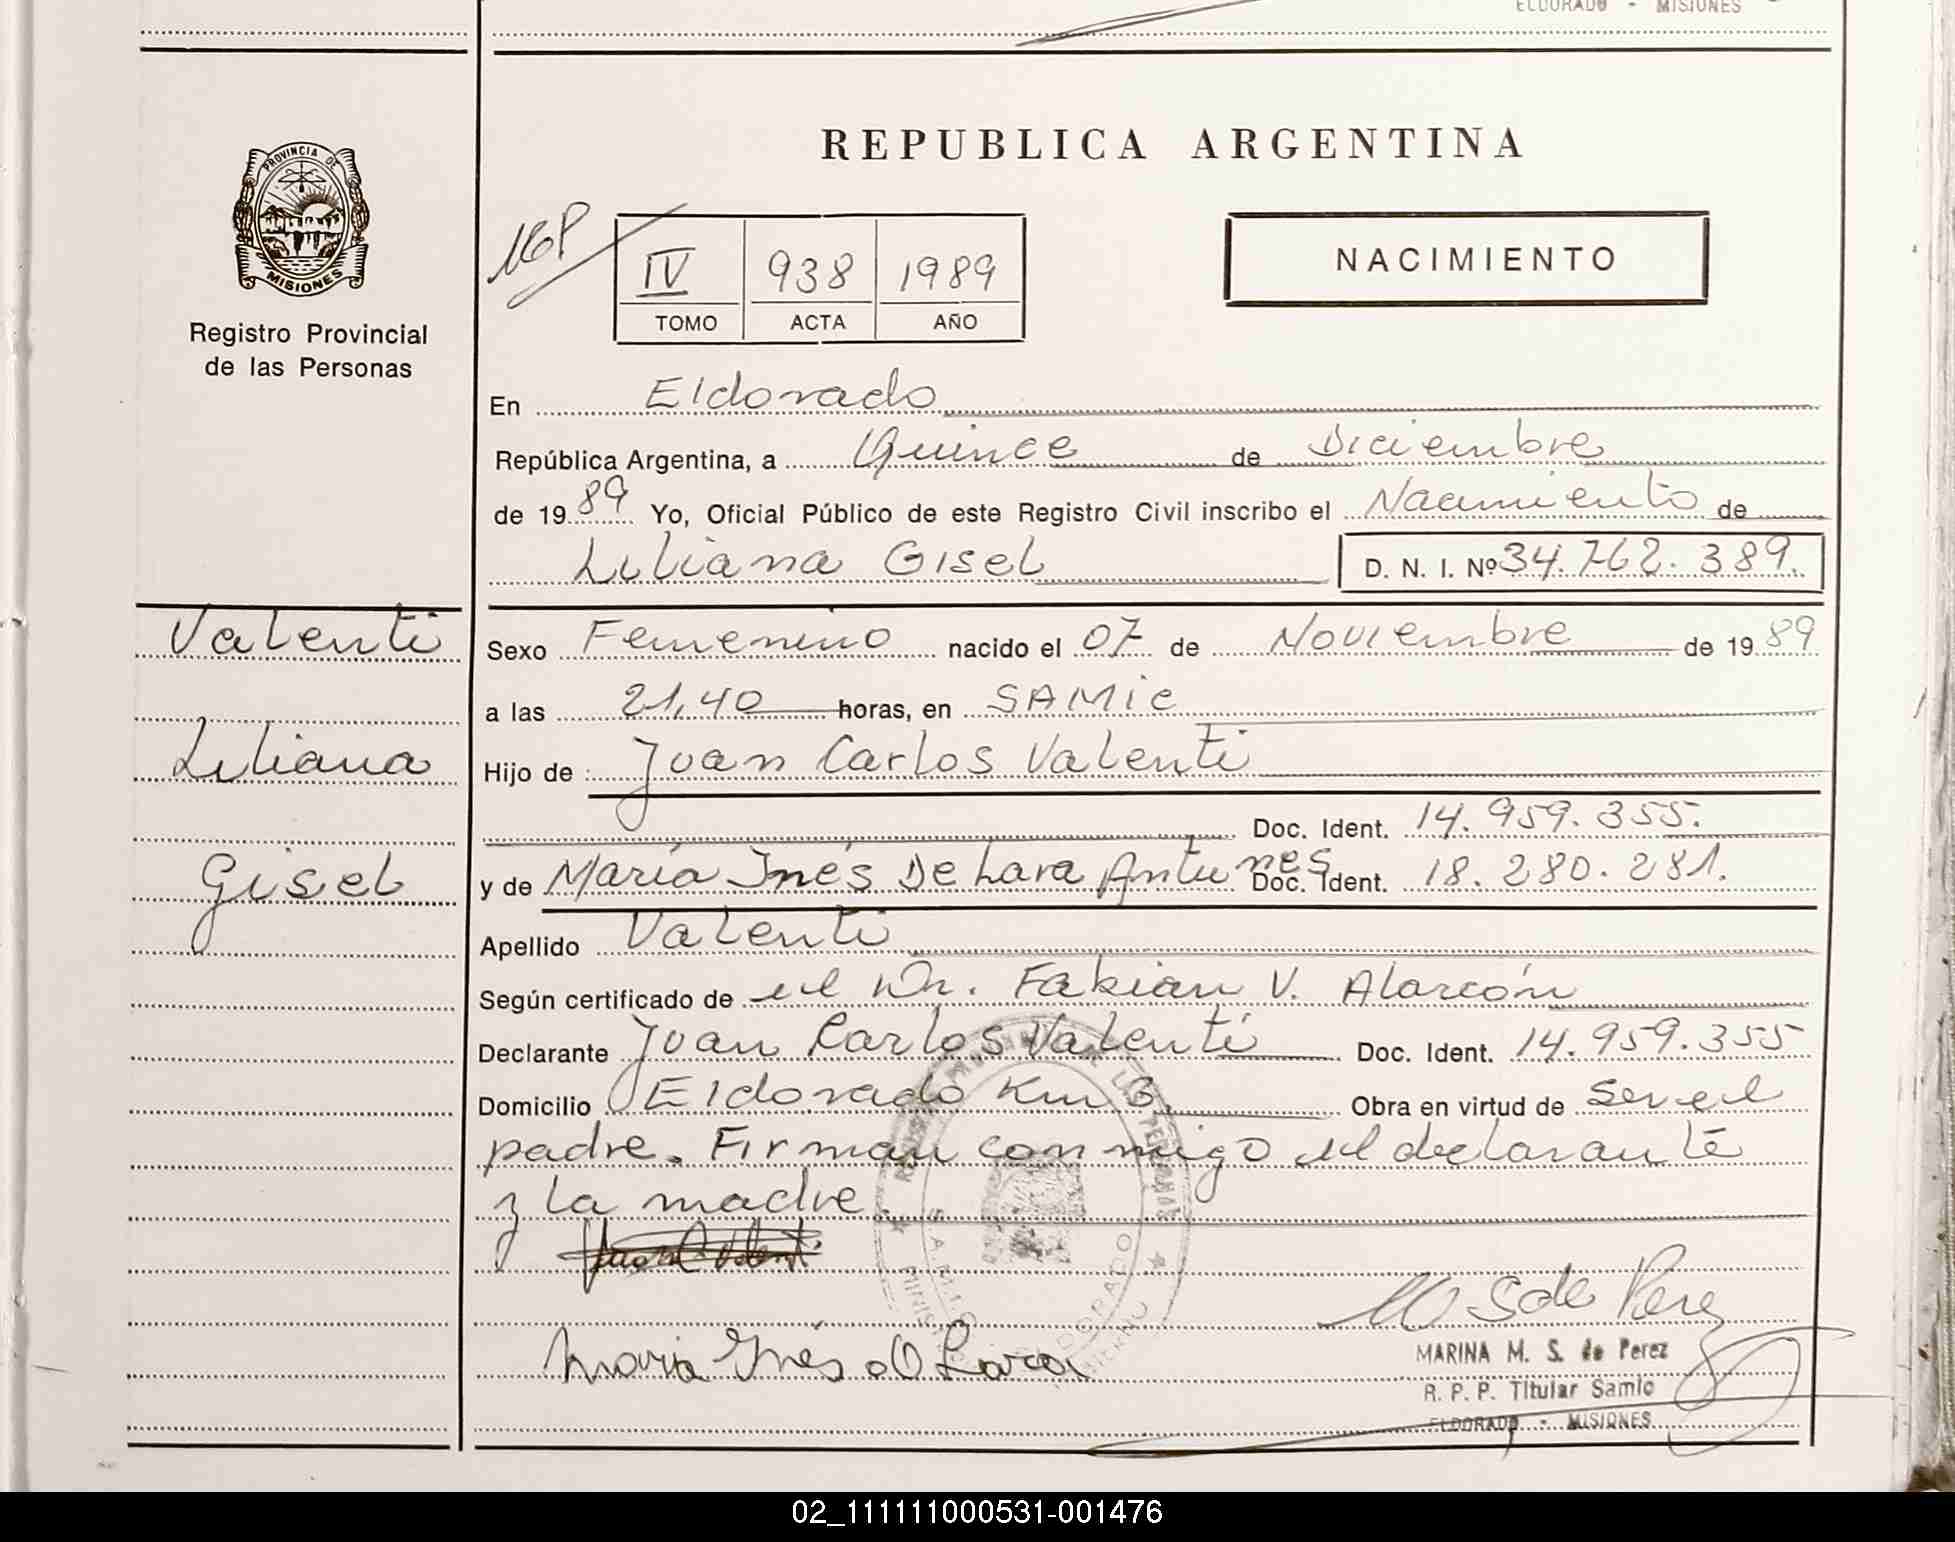 ELDORADO - MISIONES
PROVINCIA DE
MISIONES
Registro Provincial
de las Personas
REPUBLICA ARGENTINA
IV 938 1989
TOMO ACTA AÑO
NACIMIENTO
En Eldorado
República Argentina, a Quince de Diciembre
de 1989 Yo, Oficial Público de este Registro Civil inscribo el Nacimiento de
Liliana Gisel D. N. I. Nº 34.762.389.
Valenti
Liliana
Gisel
Sexo Femenino nacido el 07 de Noviembre de 1989
a las 21,40 horas, en SAMIC
Hijo de : Juan Carlos Valenti
Doc. Ident. 14.959.355.
y de María Inés De Lara Antunes Doc. Ident. 18.280.281.
Apellido Valenti
Según certificado de el Dr. Fabian V. Alarcón
Declarante Juan Carlos Valenti Doc. Ident. 14.959.355
Domicilio Eldorado Km 3. Obra en virtud de ser el
padre. Firman conmigo el declarante
y la madre.
Maria Inés D Lara
M S de Perez
MARINA M. S. de Perez
R. P. P. Titular Samic
ELDORADO - MISIONES
02_111111000531-001476